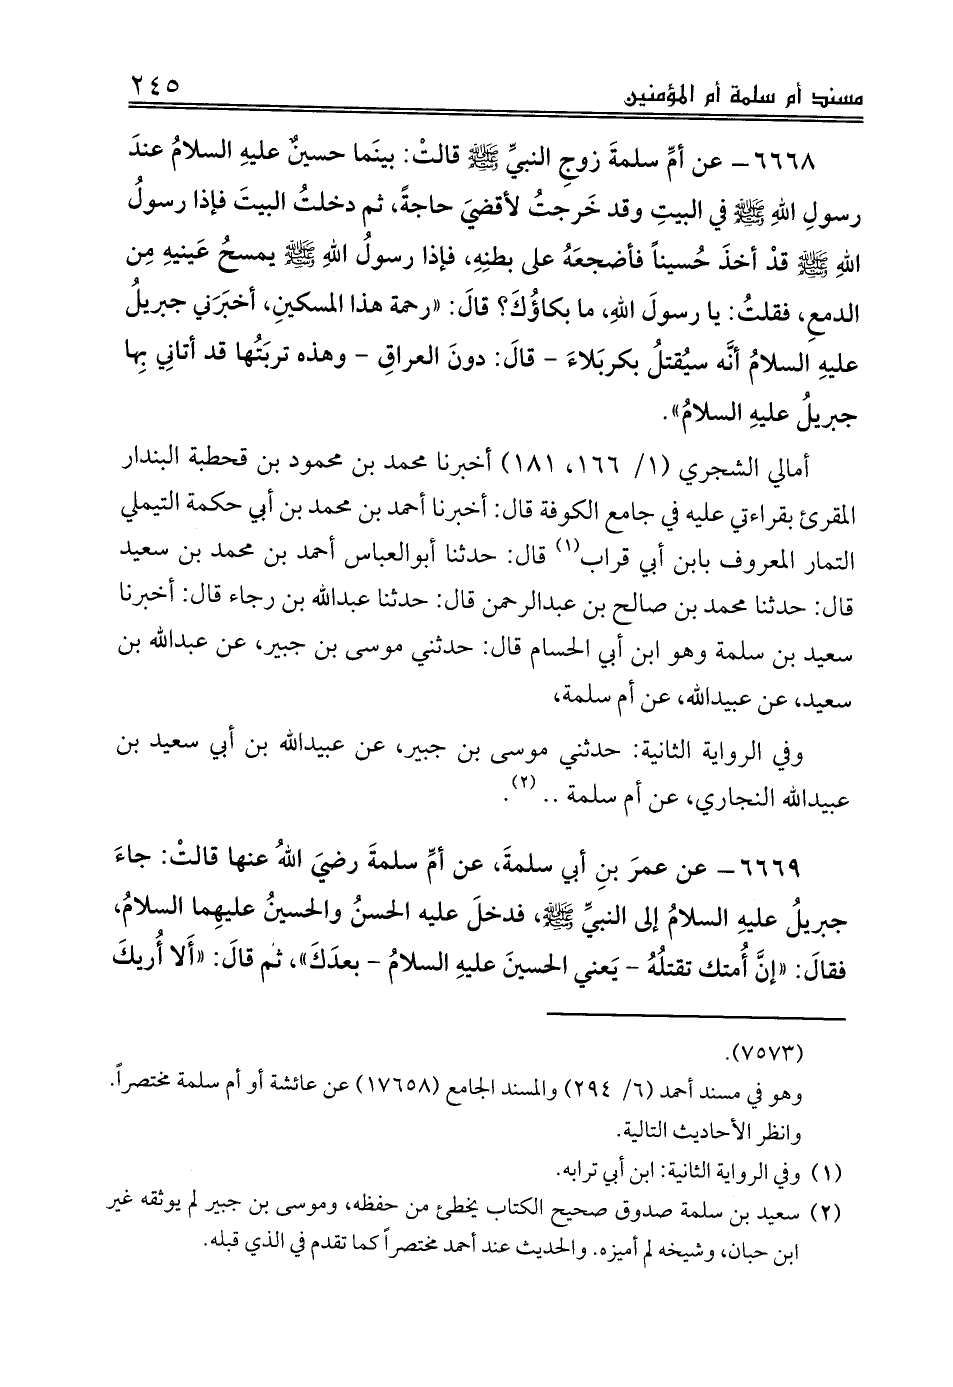 مسند أم سلمة أم المؤمنين ٢٤٥
٦٦٦٨ – عن أمِّ سلمةَ زوجِ النبيِّ ﷺ قالتْ: بينَما حسينٌ عليهِ السلامُ عندَ
رسولِ اللهِ ﷺ في البيتِ وقد خَرجتُ لأقضيَ حاجةً، ثم دخلتُ البيتَ فإذا رسولُ
اللهِ ﷺ قدْ أخذَ حُسيناً فأضجعَهُ على بطنِهِ، فإذا رسولُ اللهِ ﷺ يمسحُ عَينيهِ مِن
الدمعِ، فقلتُ: يا رسولَ اللهِ، ما بكاؤُكَ؟ قالَ: «رحمة هذا المسكينِ، أخبَرَني جبريلُ
عليهِ السلامُ أنَّه سيُقتلُ بكربَلاءَ – قالَ: دونَ العراقِ – وهذه تربَتُها قد أتاني بِها
جبريلُ عليهِ السلامُ».
أمالي الشجري (١/ ١٦٦، ١٨١) أخبرنا محمد بن محمود بن قحطبة البندار
المقرئ بقراءتي عليه في جامع الكوفة قال: أخبرنا أحمد بن محمد بن أبي حكمة التيملي
التمار المعروف بابن أبي قراب(١) قال: حدثنا أبوالعباس أحمد بن محمد بن سعيد
قال: حدثنا محمد بن صالح بن عبدالرحمن قال: حدثنا عبدالله بن رجاء قال: أخبرنا
سعيد بن سلمة وهو ابن أبي الحسام قال: حدثني موسى بن جبير، عن عبدالله بن
سعيد، عن عبيدالله، عن أم سلمة،
وفي الرواية الثانية: حدثني موسى بن جبير، عن عبيدالله بن أبي سعيد بن
عبيدالله النجاري، عن أم سلمة .. (٢).
٦٦٦٩ – عن عمرَ بنِ أبي سلمةَ، عن أمِّ سلمةَ رضيَ اللهُ عنها قالتْ: جاءَ
جبريلُ عليهِ السلامُ إلى النبيِّ ﷺ، فدخلَ عليه الحسنُ والحسينُ عليهِما السلامُ،
فقالَ: «إنَّ أُمتك تقتلُهُ – يَعني الحسينَ عليهِ السلامُ – بعدَكَ»، ثم قالَ: «أَلا أُريكَ
(٧٥٧٣).
وهو في مسند أحمد (٦/ ٢٩٤) والمسند الجامع (١٧٦٥٨) عن عائشة أو أم سلمة مختصراً.
وانظر الأحاديث التالية.
(١) وفي الرواية الثانية: ابن أبي ترابه.
(٢) سعيد بن سلمة صدوق صحيح الكتاب يخطئ من حفظه، وموسى بن جبير لم يوثقه غير
ابن حبان، وشيخه لم أميزه. والحديث عند أحمد مختصراً كما تقدم في الذي قبله.